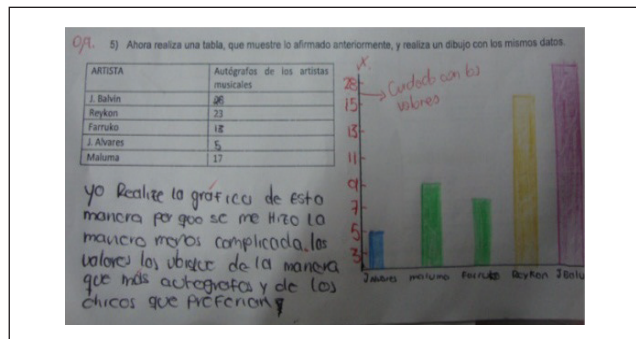 OA. 5) Ahora realiza una tabla, que muestre lo afirmado anteriormente, y realiza un dibujo con los mismos datos.
ARTISTA Autógrafos de los artistas musicales
J. Balvin 28
Reykon 23
Farruko
J. Alvares 5
Maluma 17
yo Realize la gráfica de esta
manera por que se me Hizo La
manera menos complicada, los
valores los ubique de la manera
que más autografos y de los
chicos que Preferian
x.
28
15
13
11
9
7
5
3
Cuidado con los
valores
J Alvares maluma Farruko Reykon J Balv